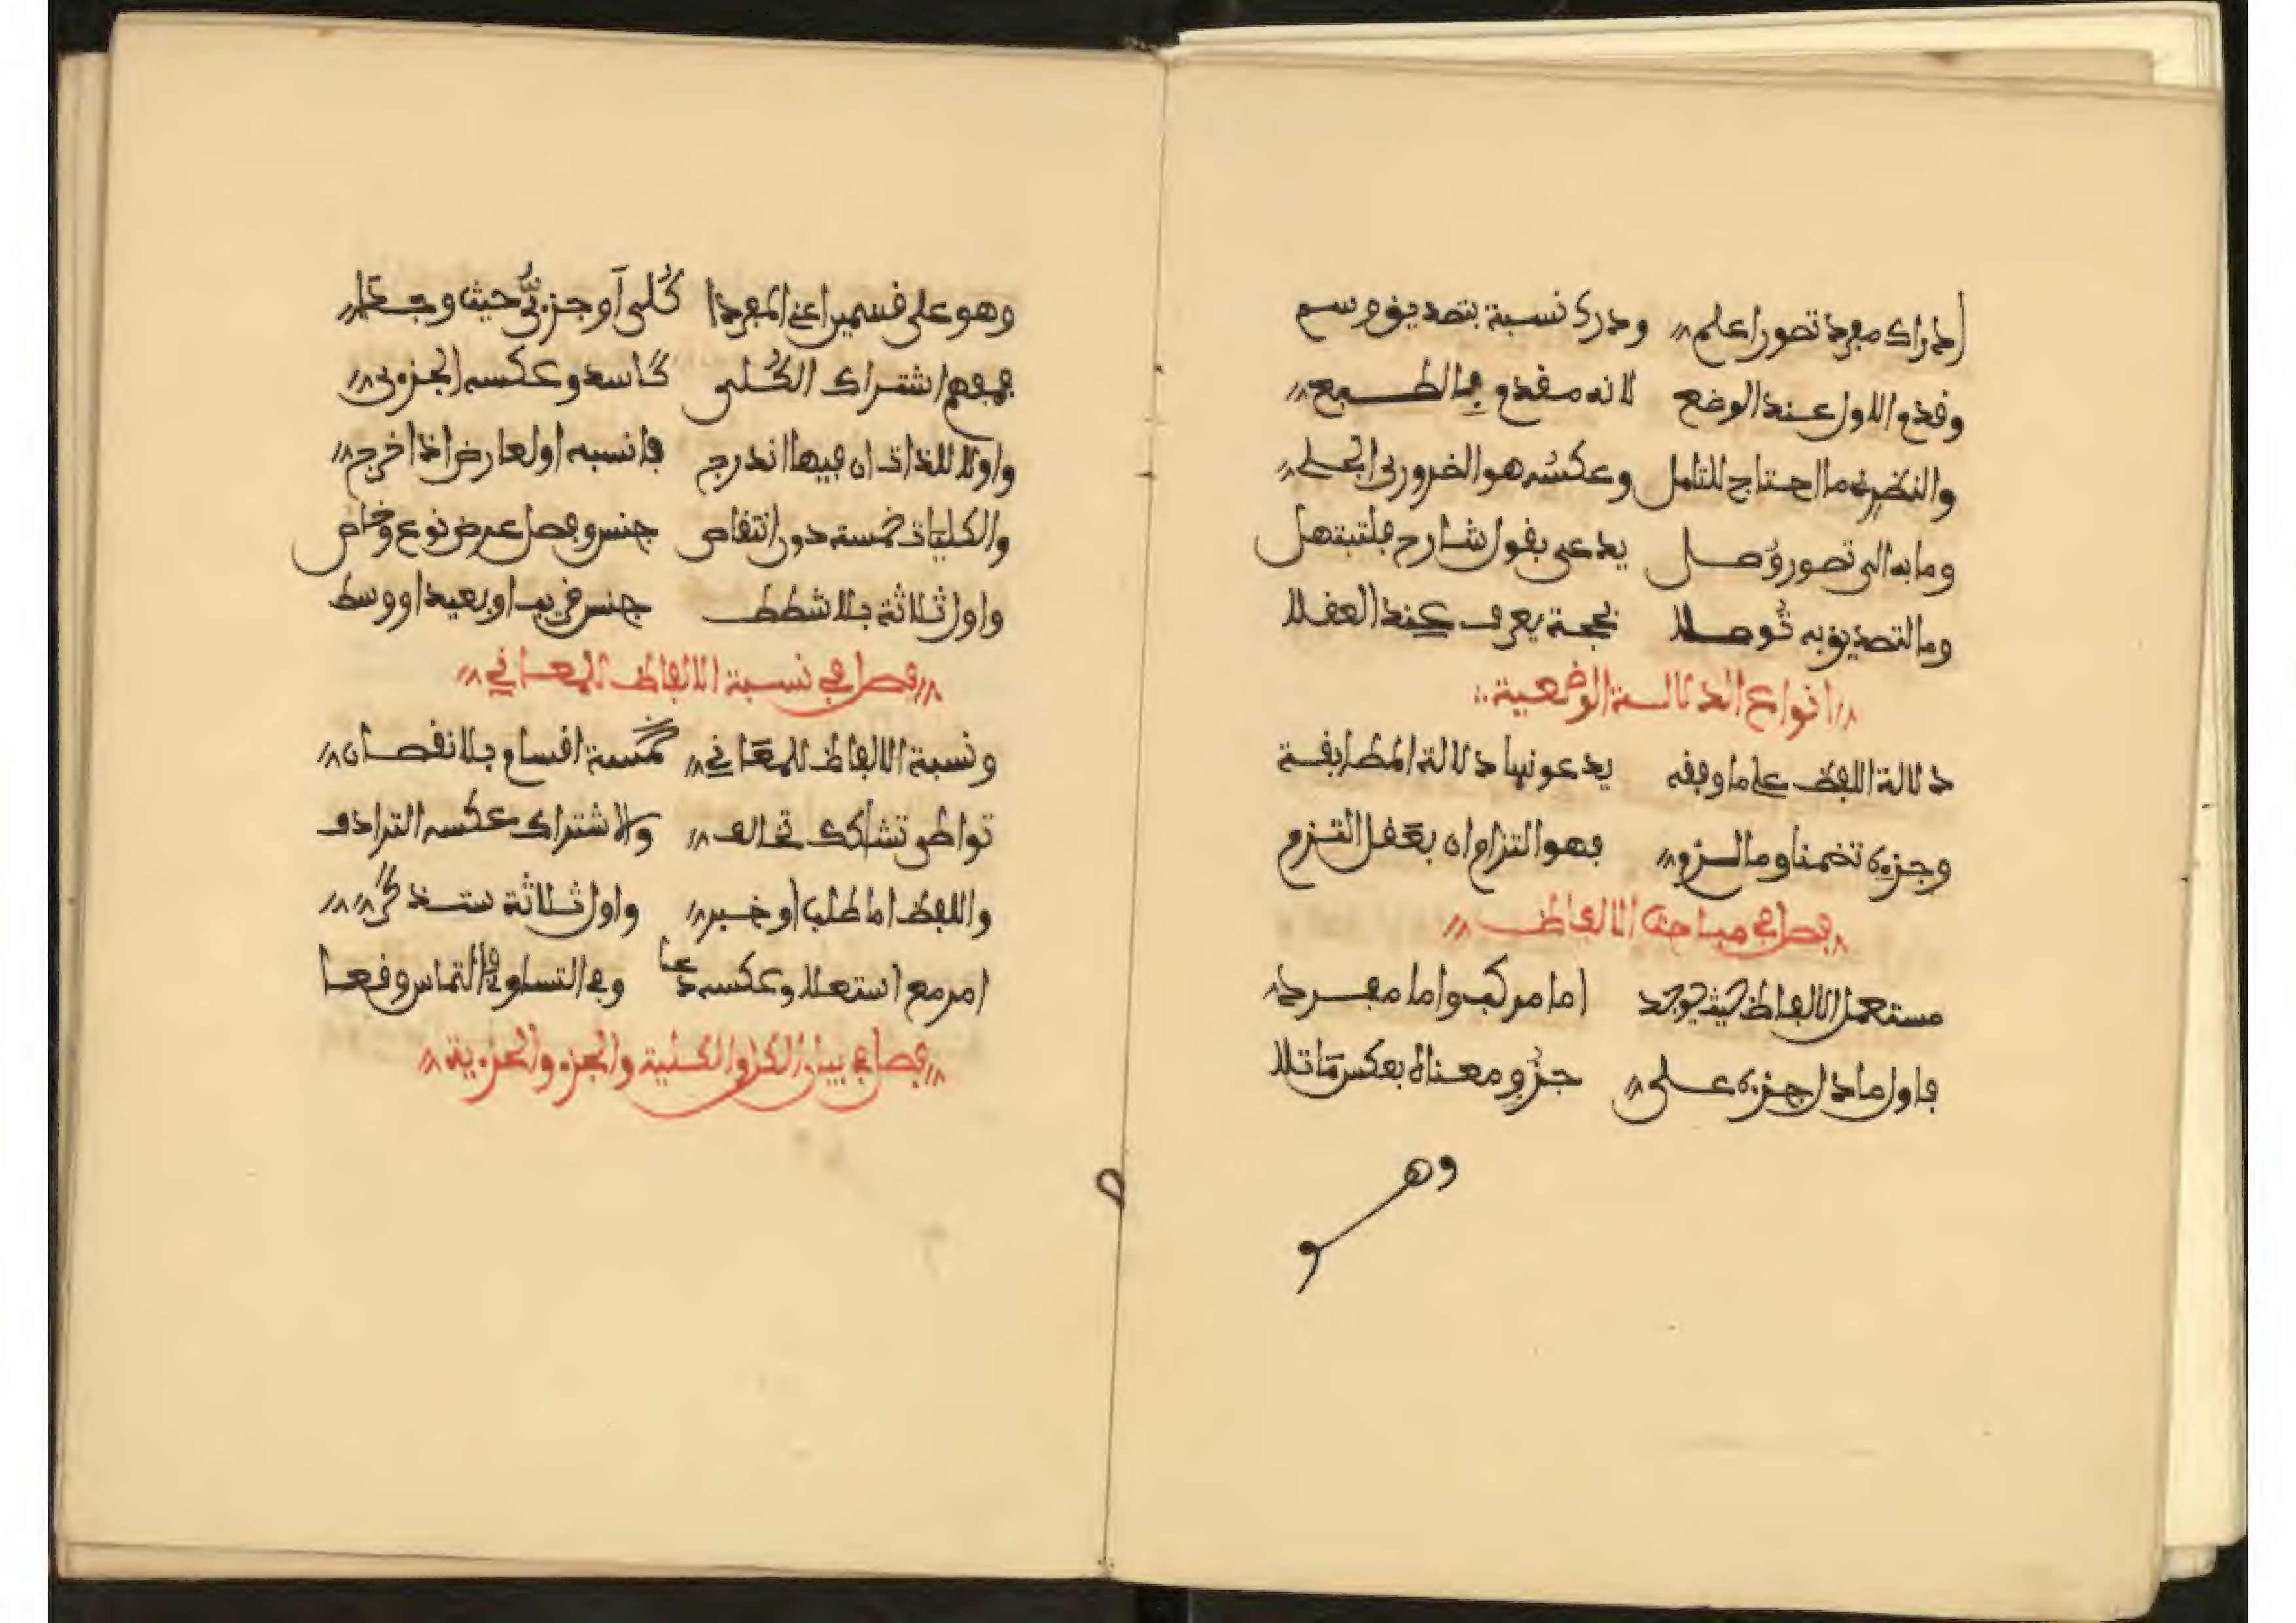 ادراك مفرد تصورا علم ودرك نسبة بتصديق وسم
وقدم الاول عند الوضع لانه مقدم بالطبع
والنظري ما احتاج للتامل وعكسه هو الضروري الجلي
وما به الى تصور وصل يدعى بقول شارح فلتبتهل
وما لتصديق به توصلا بحجة يعرف عند العقلا
انواع الدلالة الوضعية
دلالة اللفظ على ما وفقه يدعونها دلالة المطابقة
وجزءه تضمنا وما لزم فهو التزام ان بعقل التزم
فصل في مباحث الالفاظ
مستعمل الالفاظ حيث يوجد اما مركب واما مفرد
فاول ما دل جزءه على جزؤ معناه بعكس ما تلا
وهو
وهو على قسمين اعني المفردا كلي أو جزءي حيث وجدا
فمفهم اشتراك الكلي كاسد وعكسه الجزءي
واولا للذات ان فيها اندرج فانسبه او لعارض اذا خرج
والكليات خمسة دون انتقاص جنس وفصل عرض نوع وخاص
واول ثلاثة بلا شطط جنس قريب او بعيد او وسط
فصل في نسبة الالفاظ للمعاني
ونسبة الالفاظ للمعاني خمسة اقسام بلا نقصان
تواطي تشاكك تخالف والاشتراك عكسه الترادف
واللفظ اما طلب او خبر واول ثلاثة ستذكر
امر مع استعلا وعكسه دعا وفي التساوي فالتماس وقعا
فصل في بيان الكل والكلية والجزء والجزءية